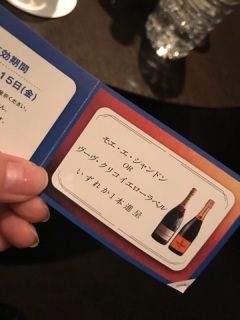 効期間
15日(金)
ください。
モエ・エ・シャンドン
OR
ヴーヴ・クリコイエローラベル
いずれか1本進呈